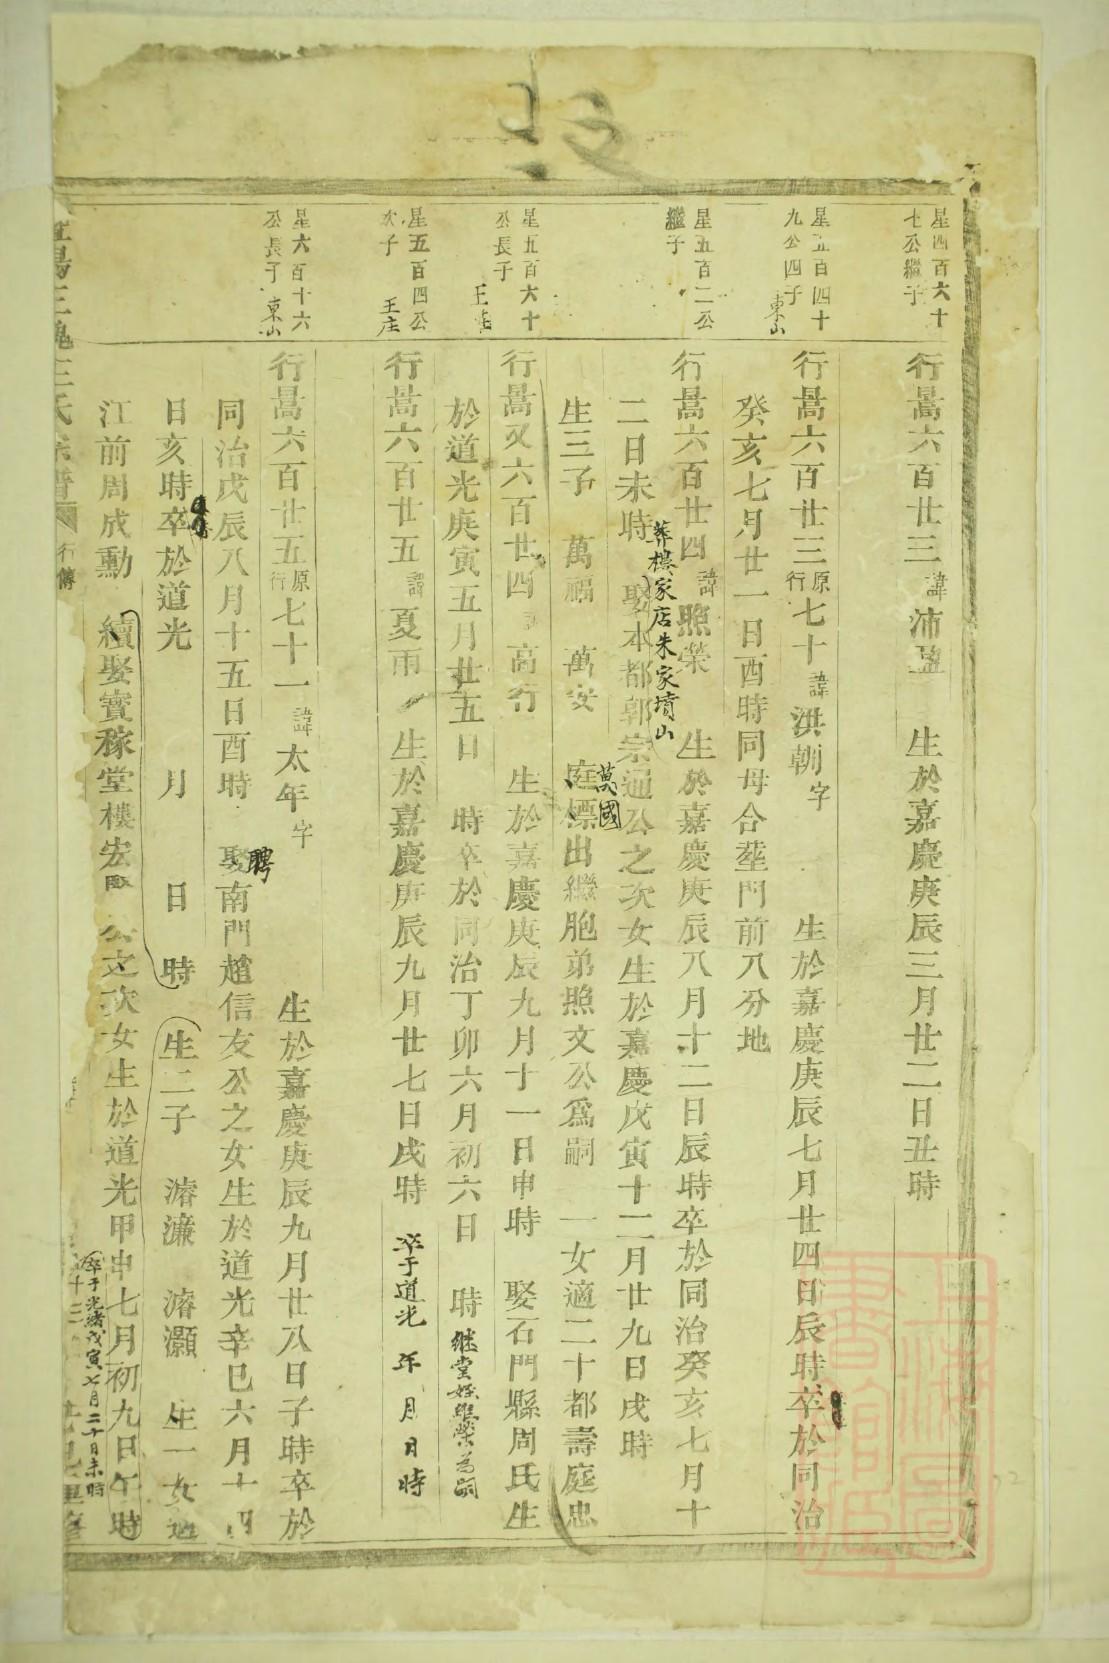 文
星四百六十
七公繼子
行暠六百廿三 諱沛盈 生於嘉慶庚辰三月廿二日丑時
星五百四十
九公四子 東山
行暠六百廿三 原行七十 諱洪朝 字 生於嘉慶庚辰七月廿四日辰時卒於同治
癸亥七月廿一日酉時同母合塟門前八分地
星五百二公
繼子
行暠六百廿四 諱照榮 生於嘉慶庚辰八月十二日辰時卒於同治癸亥七月十
葬樓家店朱家墳山
二日未時 娶本都郭宗通公之次女生於嘉慶戊寅十二月廿九日戌時
萬國
生三子 萬福 萬安 庭標出繼胞弟照文公爲嗣 一女適二十都壽庭忠
星五百六十
公長子 王莊
行暠又六百廿四 高行 生於嘉慶庚辰九月十一日申時 娶石門縣周氏生
於道光庚寅五月廿五日 時卒於同治丁卯六月初六日 時 继堂姪為嗣
星五百四公
次子 王庄
行暠六百廿五 諱夏雨 生於嘉慶庚辰九月廿七日戌時 卒于道光 年 月 日 時
星六百十六
公長子 東山
行暠六百廿五 原行七十一 諱太年 字 生於嘉慶庚辰九月廿八日子時卒於
同治戊辰八月十五日酉時 聘 娶南門趙信友公之女生於道光辛巳六月十四
日亥時卒於道光 月 日 時 生二子 濬濂 濬灝 生一女適
江前周成勳 續娶寶稼堂樓宏 公之次女生於道光甲申七月初九日午時
卒于光緒戊寅七月二十日未時
王氏宗譜 行傳